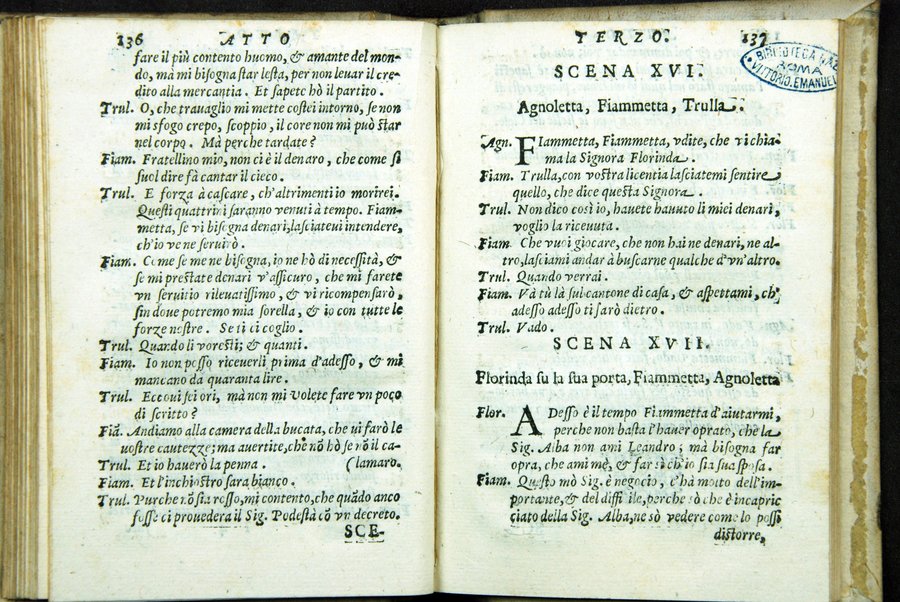 136 ATTO
fare il più contento huomo, & amante del mon-
do, mà mi bisogna star lesta, per non leuar il cre-
dito alla mercantia. Et sapete hò il partito.
Trul. O, che trauaglio mi mette costei intorno, se non
mi sfogo crepo, scoppio, il core non mi può star
nel corpo. Mà perche tardate?
Fiam. Fratellino mio, non ci è il denaro, che come si
suol dire fà cantar il cieco.
Trul. E forza à cascare, ch'altrimenti io morirei.
Questi quattrini saranno venuti à tempo. Fiam-
metta, se vi bisogna denari, lasciateui intendere,
ch'io ve ne seruirò.
Fiam. Come se me ne bisogna, io ne hò di necessità, &
se mi prestate denari v'assicuro, che mi farete
vn seruitio rileuatissimo, & vi ricompensarò,
sin doue potremo mia sorella, & io con tutte le
forze nostre. Se ti ci coglio.
Trul. Quando li vorestù, & quanti.
Fiam. Io non posso riceuerli prima d'adesso, & mi
mancano da quaranta lire.
Trul. Eccoui sci ori, mà non mi volete fare vn poco
di scritto?
Fiã. Andiamo alla camera della bucata, che ui farò le
uostre cautezze; ma auertite, che nõ hò se nõ il ca-
Trul. Et io hauerò la penna. (lamaro.
Fiam. Et l'inchiostro sara bianco.
Trul. Purche nõ sia rosso, mi contento, che quãdo anco
fosse ci prouederà il Sig. Podestà cõ vn decreto.
SCE-
TERZO. 137
BIBLIOTECA NAZ
ROMA
VITTORIO EMANUEL
SCENA XVI.
Agnoletta, Fiammetta, Trulla.
Agn. FIammetta, Fiammetta, vdite, che vi chia-
ma la Signora Florinda.
Fiam. Trulla, con vostra licentia lasciatemi sentire
quello, che dice questa Signora.
Trul. Non dico così io, hauete hauuto li miei denari,
voglio la riceuuta.
Fiam. Che vuoi giocare, che non hai ne denari, ne al-
tro, lasciami andar à buscarne qualche d'vn'altro.
Trul. Quando verrai.
Fiam. Và tù là sul cantone di casa, & aspettami, ch'
adesso adesso ti sarò dietro.
Trul. Vado.
SCENA XVII.
Florinda su la sua porta, Fiammetta, Agnoletta
Flor. ADesso è il tempo Fiammetta d'aiutarmi,
perche non basta l'hauer oprato, che la
Sig. Alba non ami Leandro; mà bisogna far
opra, che ami me, & far sì ch'io sia sua sposa.
Fiam. Questo mò Sig. è negocio, c'hà molto dell'im-
portante, & del difficile, perche sò che è incapric
ciato della Sig. Alba, ne sò vedere come lo possi
distorre,